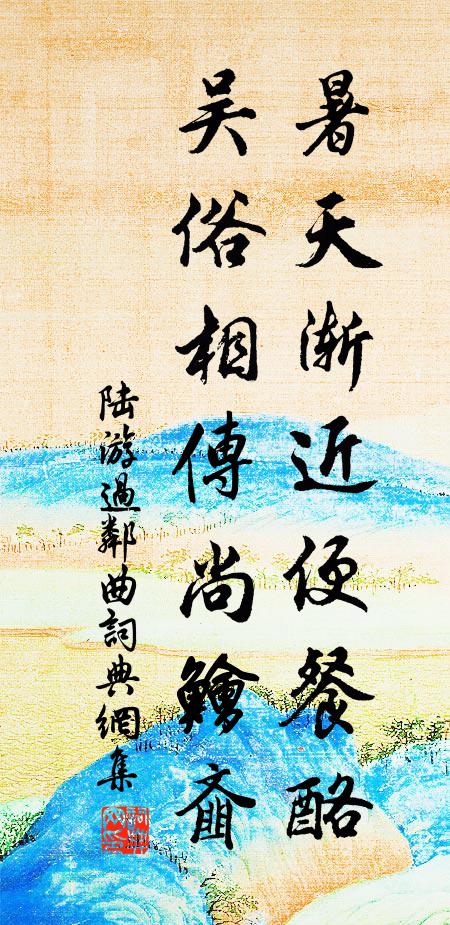 暑天渐近便餐酪
吴俗相傳尚鱠齑
陆游過鄰曲詞典網集